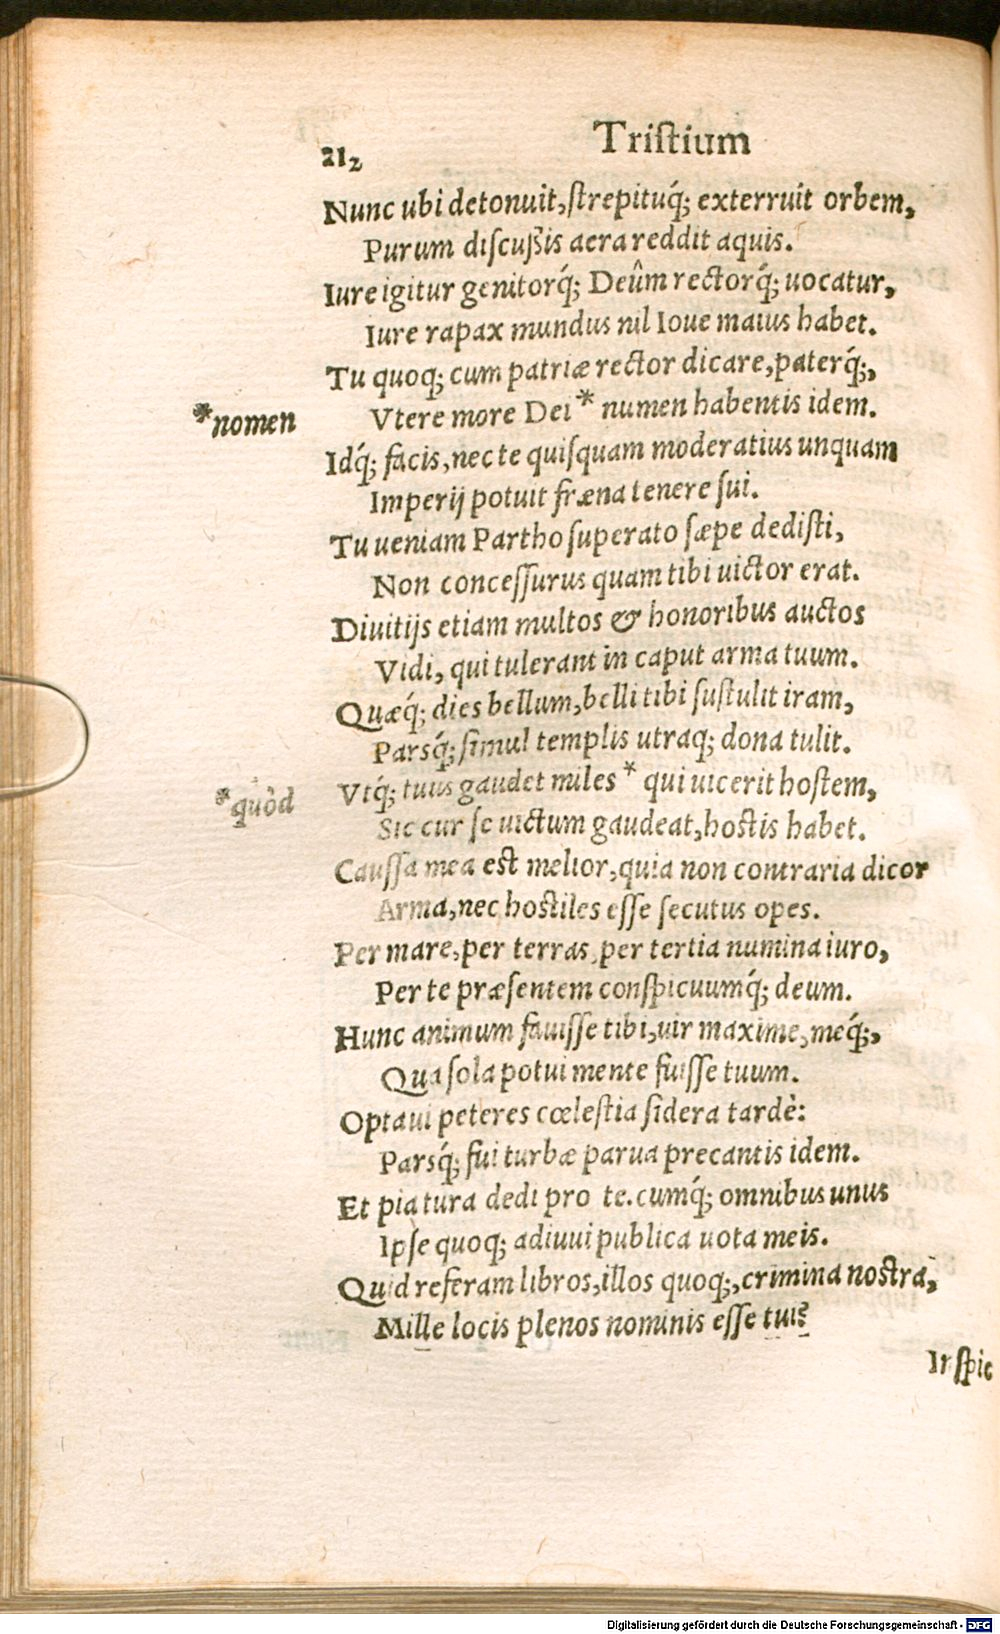 212
Tristium
Nunc ubi detonuit, strepituq́; exterruit orbem,
Purum discußis aera reddit aquis.
Iure igitur genitorq́; Deûm rectorq́; uocatur,
Iure rapax mundus nil Ioue maius habet.
Tu quoq; cum patriæ rector dicare, paterq́;,
*nomen
Vtere more Dei * numen habentis idem.
Idq́; facis, nec te quisquam moderatius unquam
Imperij potuit fræna tenere sui.
Tu ueniam Partho superato sæpe dedisti,
Non concessurus quam tibi uictor erat.
Diuitijs etiam multos & honoribus auctos
Vidi, qui tulerant in caput arma tuum.
Quæq́; dies bellum, belli tibi sustulit iram,
Parsq́; simul templis utraq; dona tulit.
*quòd
Vtq́; tuus gaudet miles * qui uicerit hostem,
Sic cur se uictum gaudeat, hostis habet.
Caussa mea est melior, quia non contraria dicor
Arma, nec hostiles esse secutus opes.
Per mare, per terras, per tertia numina iuro,
Per te præsentem conspicuumq́; deum.
Hunc animum fauisse tibi, uir maxime, meq́;,
Qua sola potui mente fuisse tuum.
Optaui peteres cœlestia sidera tardè:
Parsq́; fui turbæ parua precantis idem.
Et pia tura dedi pro te. cumq́; omnibus unus
Ipse quoq; adiuui publica uota meis.
Quid referam libros, illos quoq;, crimina nostra,
Mille locis plenos nominis esse tui?
Inspic
Digitalisierung gefördert durch die Deutsche Forschungsgemeinschaft - DFG